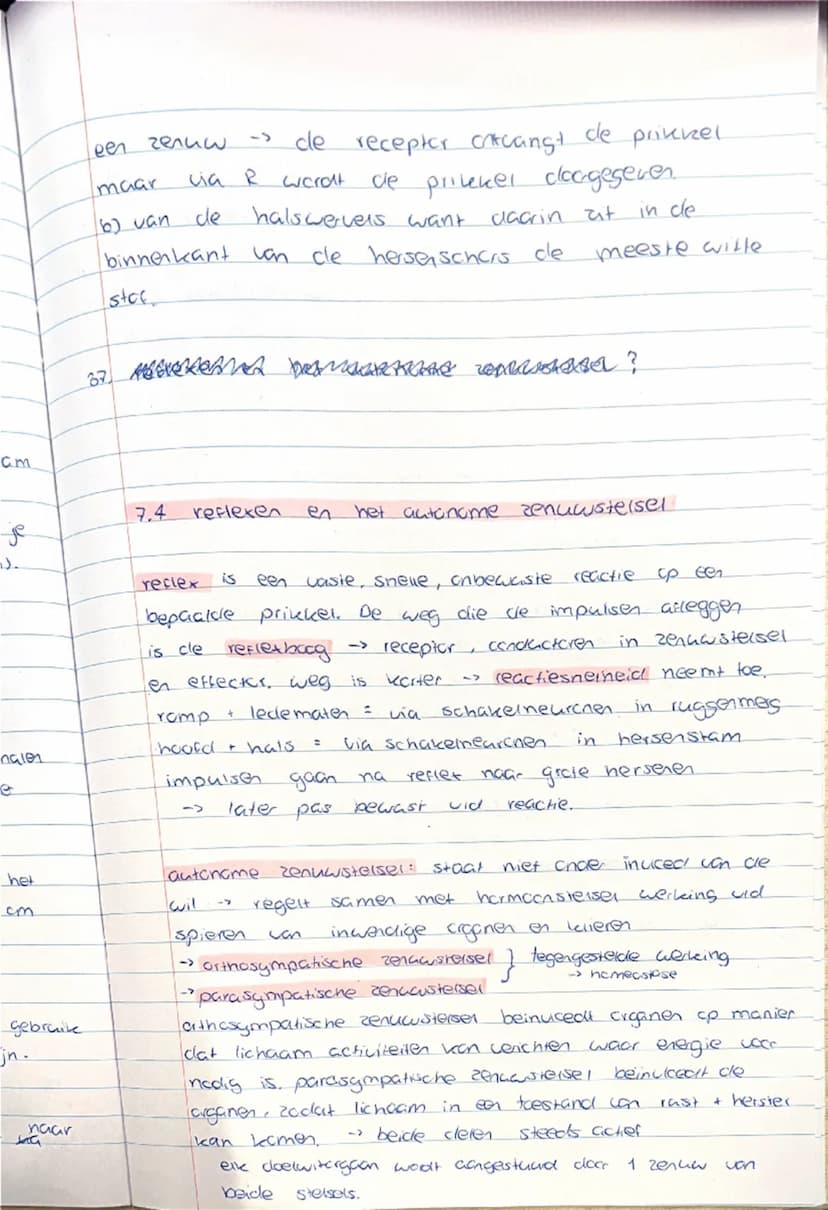 een zenuw -> de receptor ontvangt de prikkel
maar via R wordt de prikkel doorgegeven
b) van de halswervels want daarin zit in de
binnenkant van de hersenschors de meeste witte
stof.
37. ?
am
7.4 reflexen en het autonome zenuwstelsel
je
reflex is een vaste, snelle, onbewuste reactie op een
bepaalde prikkel. De weg die de impulsen afleggen
is de reflexboog -> receptor, conductoren in zenuwstelsel
en effector. weg is korter -> reactiesnelheid neemt toe.
romp + ledematen = via schakelneuronen in ruggenmerg
hoofd + hals = via schakelneuronen in hersenstam
nalen
impulsen gaan na reflex naar grote hersenen
e
-> later pas bewust v/d reactie.
autonome zenuwstelsel: staat niet onder invloed van de
het
wil -> regelt samen met hormoonstelsel werking v/d
om
spieren van inwendige organen en klieren
-> orthosympatische zenuwstelsel } tegengestelde werking
-> homeostase
-> parasympatische zenuwstelsel
orthosympatische zenuwstelsel beinvloedt organen op manier
gebruik
dat lichaam activiteiten kan verichten waar energie voor
jn.
nodig is. parasympatische zenuwstelsel beinvloedt de
organen, zodat lichaam in een toestand van rust + herstel
naar
kan komen. -> beide delen steeds actief
elk doelwitorgaan wordt aangestuurd door 1 zenuw van
beide stelsels.